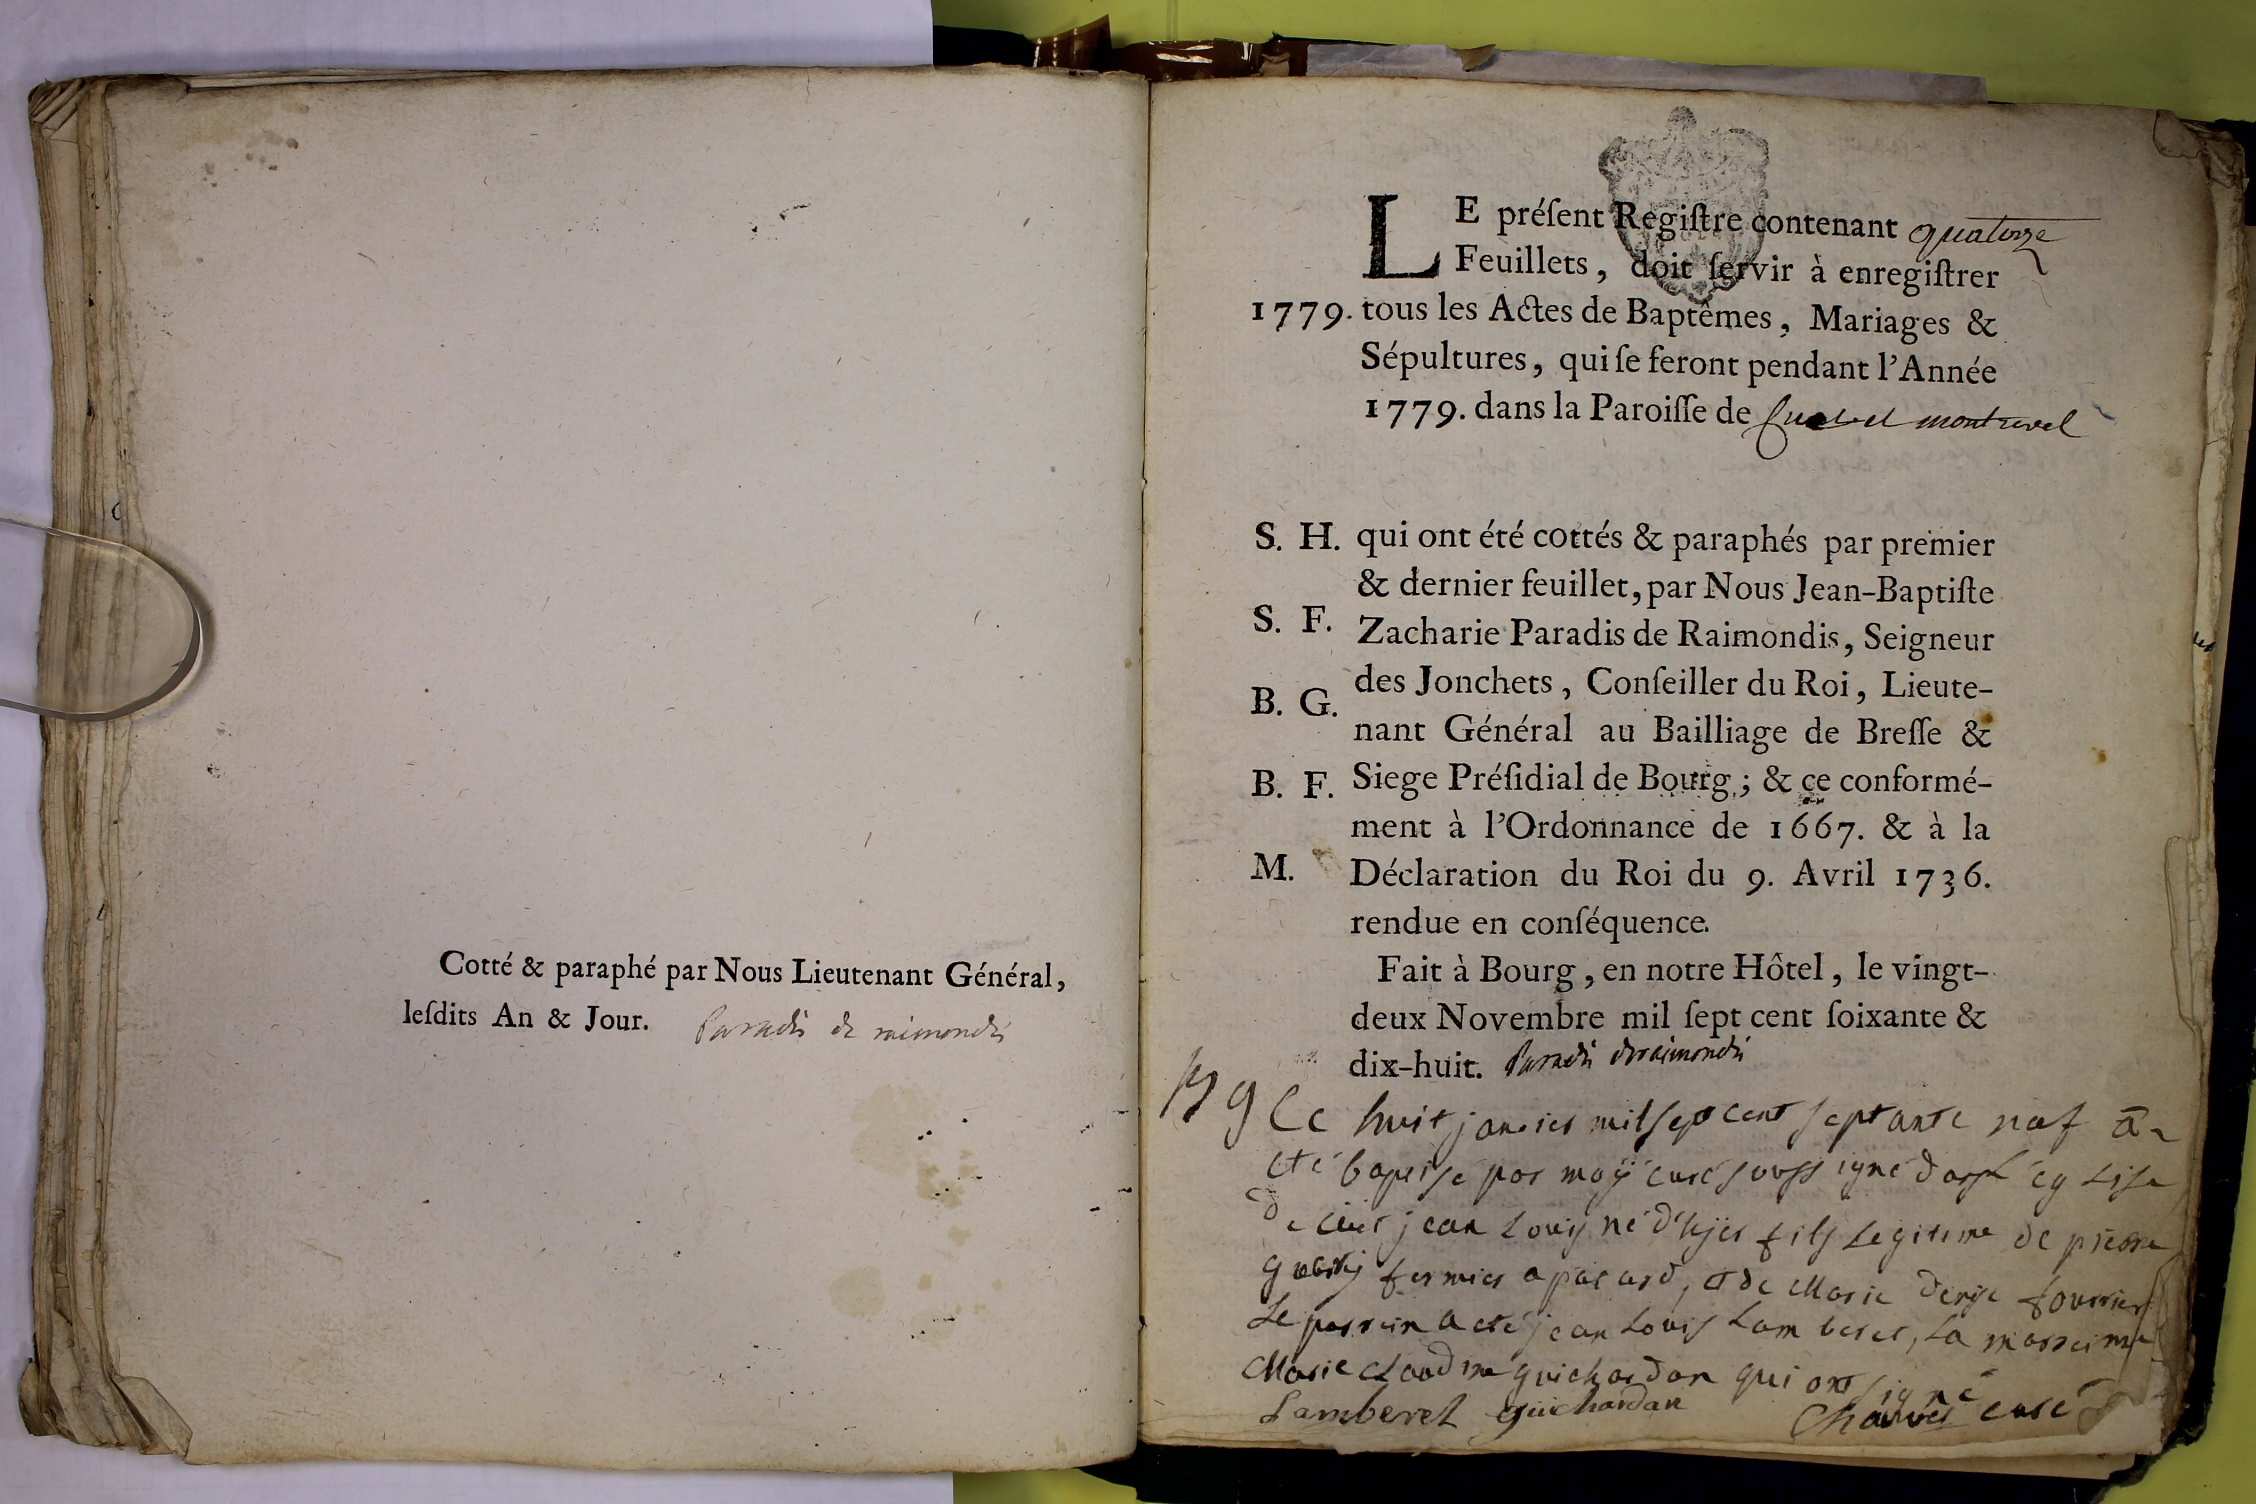 Cotté & paraphé par Nous Lieutenant Général,
leſdits An & Jour. Paradis de raimondis
LE préſent Regiſtre contenant quatorze
Feuillets, doit ſervir à enregiſtrer
1779. tous les Actes de Baptêmes, Mariages &
Sépultures, qui ſe feront pendant l'Année
1779. dans la Paroiſſe de montrevel
S. H. qui ont été cottés & paraphés par premier
& dernier feuillet, par Nous Jean-Baptiſte
S. F. Zacharie Paradis de Raimondis, Seigneur
des Jonchets, Conſeiller du Roi, Lieute-
B. G. nant Général au Bailliage de Breſſe &
B. F. Siege Préſidial de Bourg; & ce conformé-
ment à l'Ordonnance de 1667. & à la
M. Déclaration du Roi du 9. Avril 1736.
rendue en conſéquence.
Fait à Bourg, en notre Hôtel, le vingt-
deux Novembre mil ſept cent ſoixante &
dix-huit. Paradis de raimondis
Le huit janvier mil sept cent septante neuf a
été baptisé par moÿ curé soussigné église
de jean Louis né d'hyer fils Legitime de pierre
fermier et de Marie denise fourrier
Le parrein a été jean Louis Lamberet, La marreine
Marie claudine guichardan qui ont signé
Lamberet guichardan Chauvet curé